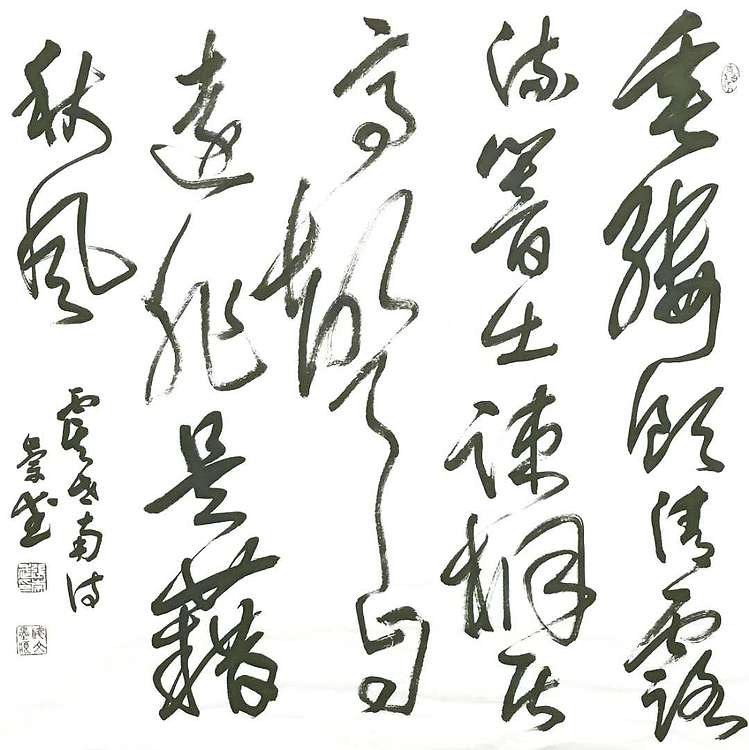 垂緌飲清露
流響出疎桐居
高聲自
遠非是藉
秋風
虞世南詩
崇